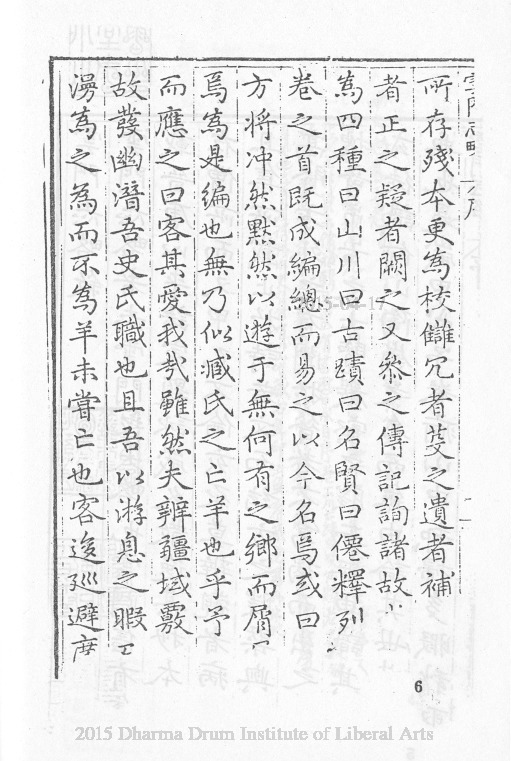 所存殘本更為校讎冗者芟之遺者補
者正之疑者闕之又叅之傳記詢諸故
為四種曰山川曰古蹟曰名賢曰僊釋列
卷之首既成編總而易之以今名焉或曰
方将冲然黙然以遊于無何有之鄉而屑
焉為是編也無乃似臧氏之亡羊也乎予
而應之曰客其愛我哉雖然夫辨疆域覈
故發幽潛吾史氏職也且吾以游息之暇
漫為之為而不為羊未嘗亡也客逡廵避
6
2015 Dharma Drum Institute of Liberal Arts